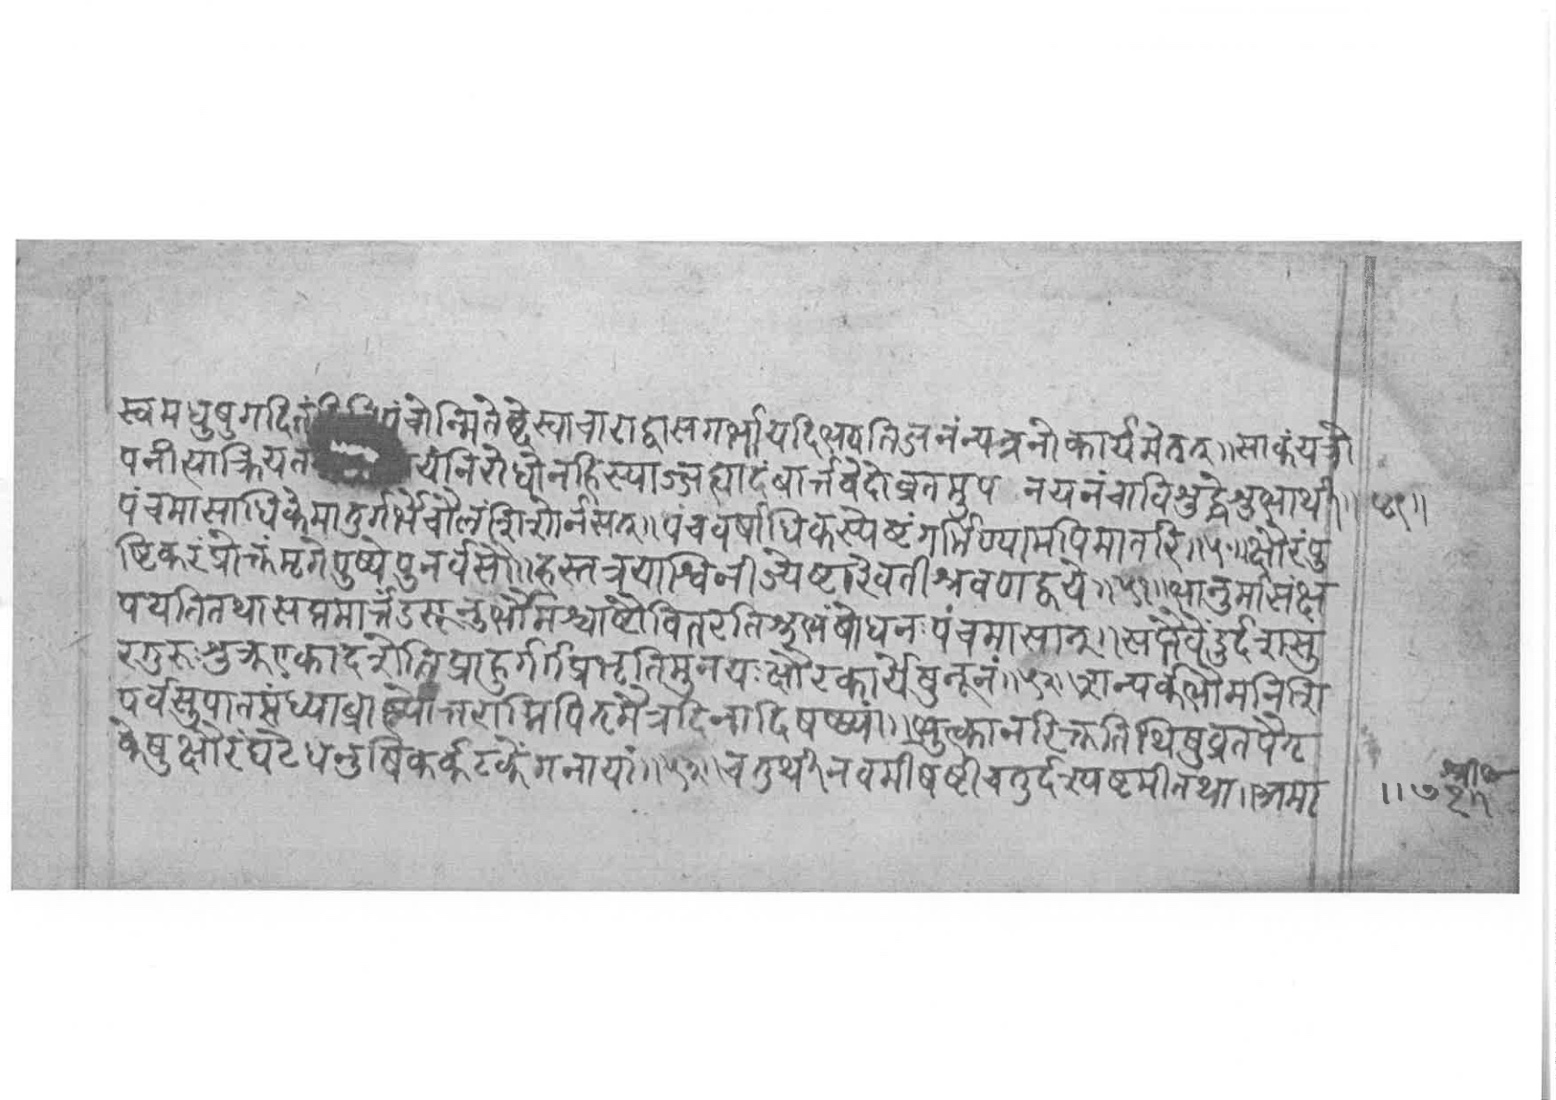 स्वमधुषुगदितं पंचोन्मितेब्देस्वाचाराद्वासगर्भायदिभवतिजनंन्यत्रनोकार्यमेतत्॥साकंयत्रौ
पनीत्याक्रियत यंनिरोधोनहिस्याज्जह्यादंबार्त्तवेदोव्रतमुप नयनंचाविशुद्धेशुभार्थी॥ ४९॥
पंचमासाधिकेमातुर्गर्भेचौलंशिशोर्नसत्॥पंचवर्षाधिकस्येष्टंगर्भिण्यामपिमातरि॥५०॥क्षौरंपु
ष्टिकरंप्रोक्तंमृगेपुष्येपुनर्वसौ॥हस्तत्रयाश्विनीज्येष्टारेवतीश्रवणाद्वये॥५१॥भानुर्मासंक्ष
पयतितथासप्तमार्त्तंडसूनुर्भौमश्चाष्टौवितरतिशुभंबोधनःपंचमासान्॥सप्तैवेंदुर्दशसु
रगुरुःशुक्रएकादशेतिप्राहुर्गर्गप्रभृतिमुनयःक्षौरकार्येषुनूनं॥५२॥शन्यर्कभौमनिशि
पर्वसुपातसंध्या त्तराग्निपितृमैत्रदिनादिषष्ठ्यां॥भुक्तानरिक्ततिथिषुव्रतपैतृ
केषुक्षौरंघटेधनुषिकर्कटकेंगनायां॥५३॥चतुर्थीनवमीषष्टीचतुर्दश्यष्टमीतथा॥अमा